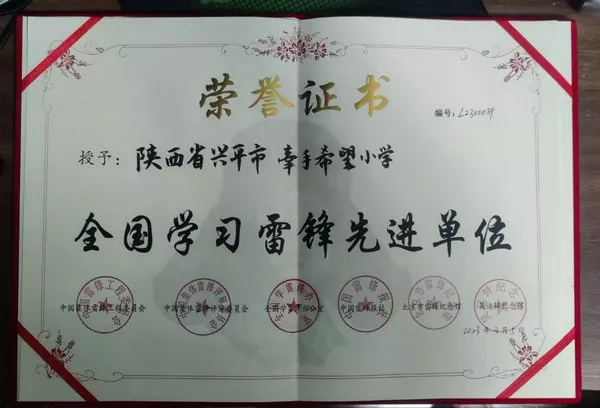 荣誉证书
编号:L2300039
授予:陕西省兴平市 牵手希望小学
全国学习雷锋先进单位
中国集体雷锋工程委员会 中国集体雷锋评审委员会 全国学 办公室 中国雷锋报社 北京市雷锋纪念馆 吴运铎纪念馆
2023年3月5日